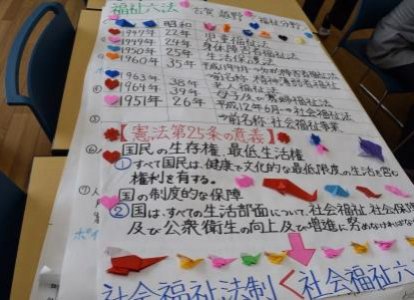 福祉六法 古賀 荻野 福祉分野
昭和
1947年 22年 児童福祉法
1949年 24年 身体障害者福祉法
1950年 25年 生活保護法
1960年 35年
1963年 38年 老人福祉法
1964年 39年 母子及び寡婦福祉法
1951年 26年 平成12年6月〜社会福祉法
名称 社会福祉事業
【憲法第25条の意義】
国民の生存権 最低生活権
①すべて国民は、健康で文化的な最低限度の生活を営む
権利を有する。
国の制度的な保障
②国は、すべての生活部面について、社会福祉、社会保障
及び公衆衛生の向上及び増進に努めなければな
社会福祉法制 < 社会福祉六